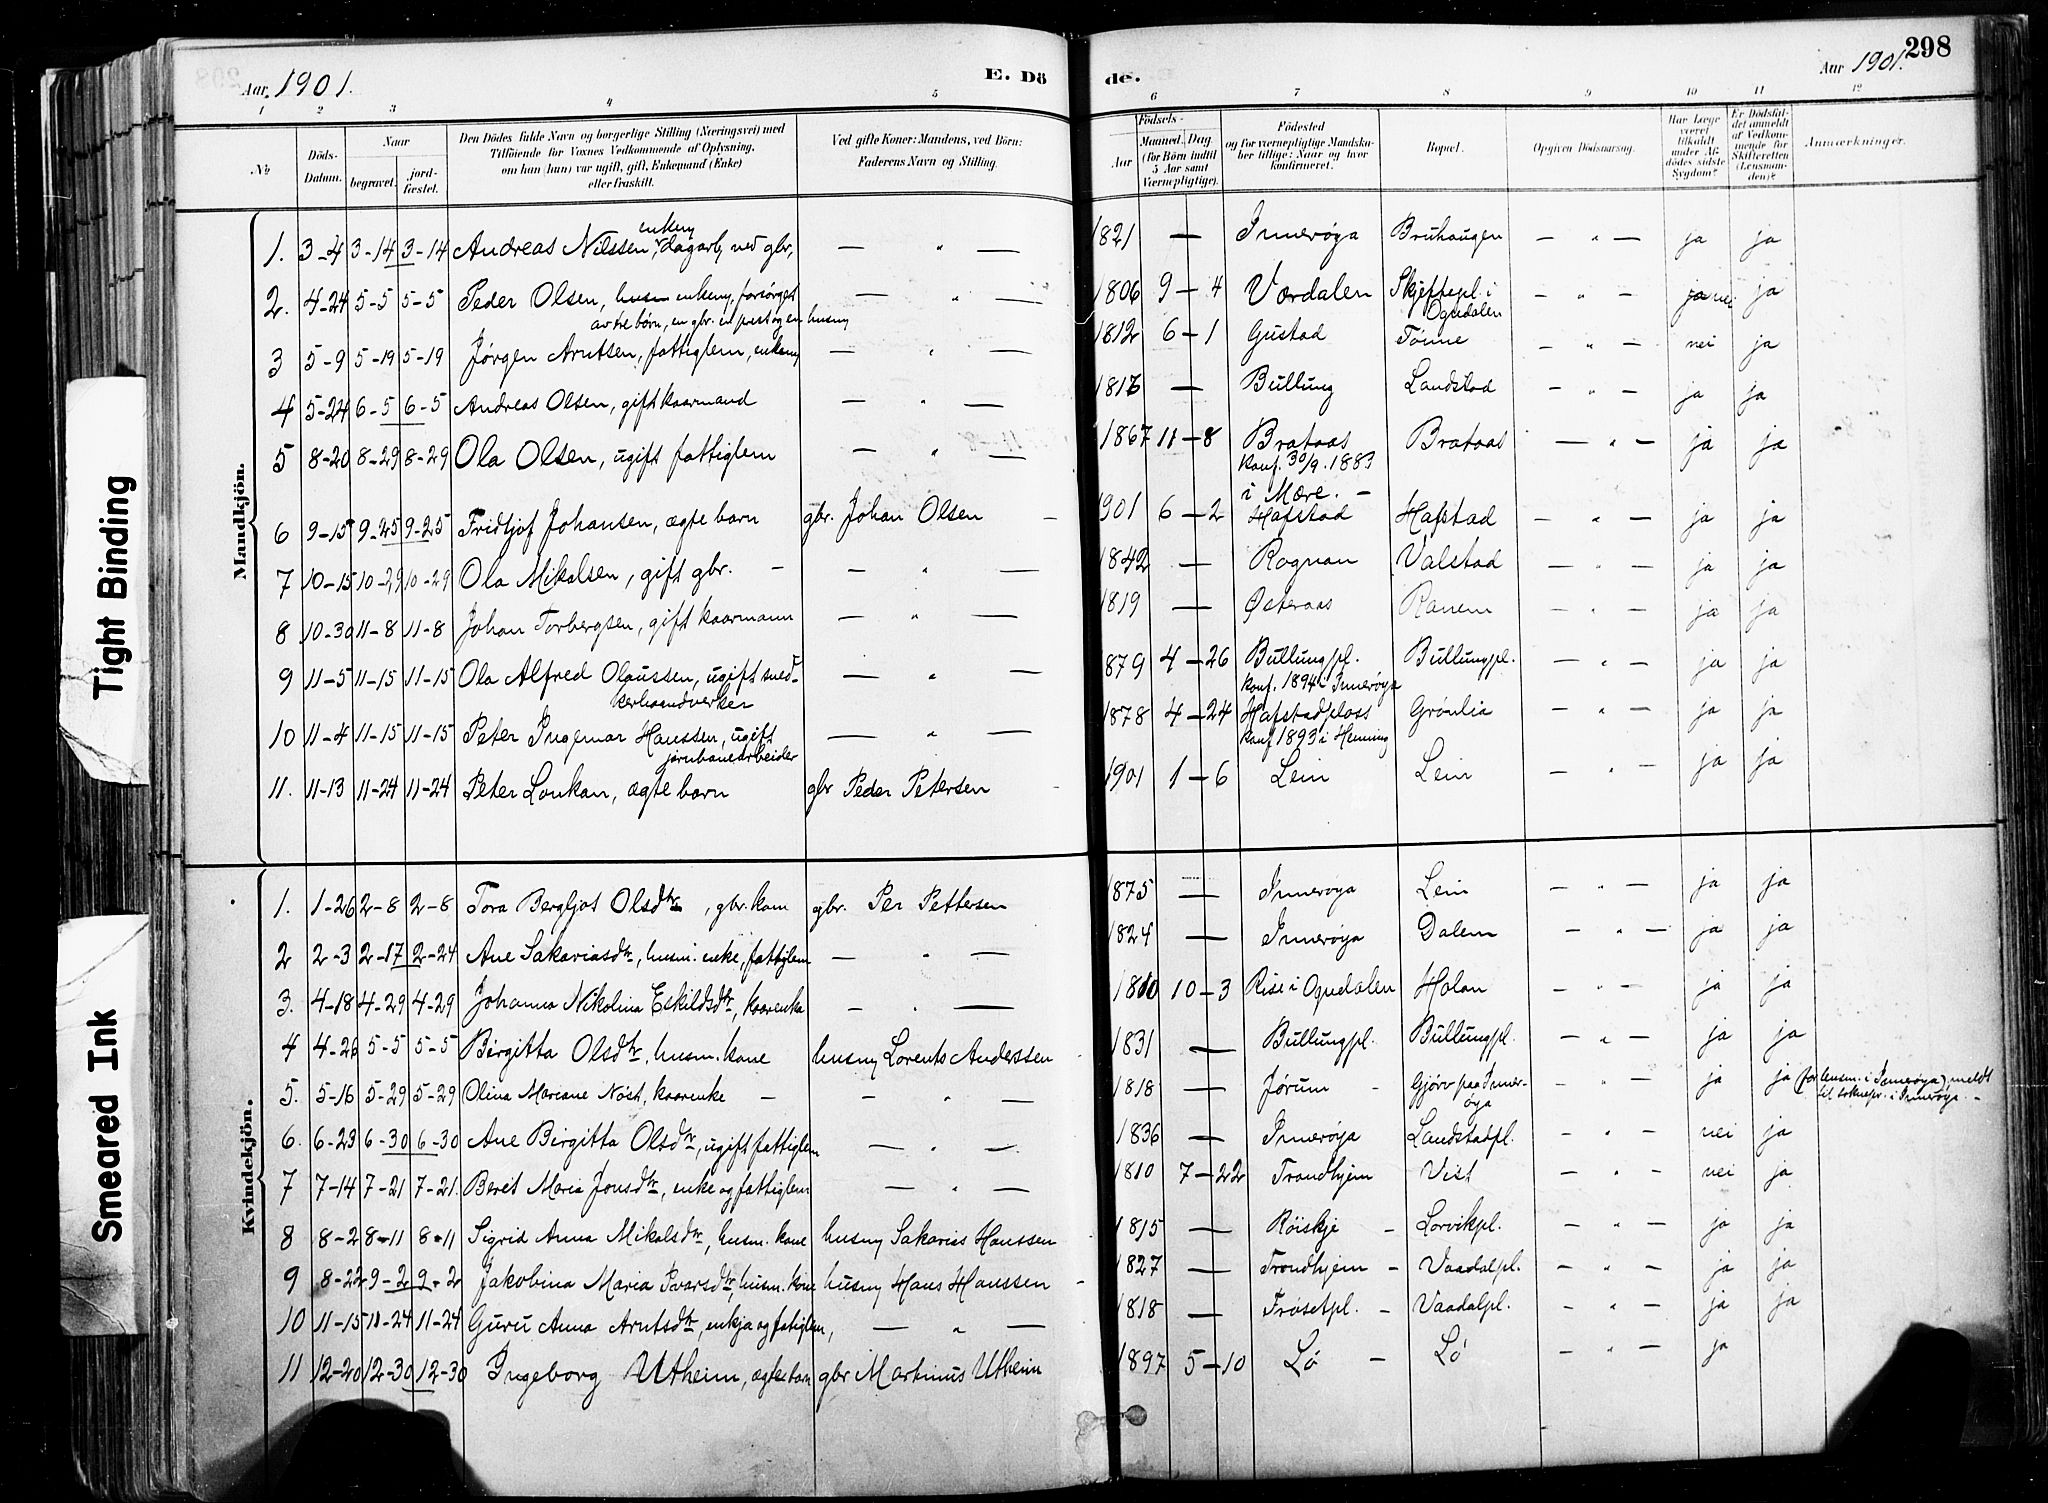 298
Aar 1901.
E. Dö
de.
Aar 1901.
1 2 3 4 5 6 7 8 9 10 11 12
№
Döds-Datum.
Naar
begravet.
jord-fæstet.
Den Dödes fulde Navn og borgerlige Stilling (Næringsvei) med
Tilföiende for Voxnes Vedkommende af Oplysning,
om han (hun) var ugift, gift, Enkemand (Enke)
eller fraskilt.
Ved gifte Koner: Mandens, ved Börn:
Faderens Navn og Stilling.
Födsels-
Aar
Maaned. Dag.
(for Börn indtil
5 Aar samt
Værnepligtige).
Födested
og for værnepligtige Mandska-
ber tillige: Naar og hvor
konfirmeret.
Bopæl.
Opgiven Dödsaarsag.
Har Læge
været
tilkaldt
under Af-
dödes sidste
Sygdom?
Er Dödsfal-
det anmeldt
af Vedkom-
mende for
Skifteretten
(Lensman-
den)?
Anmærkninger.
Mandkjön.
enkem
1. 3-4 3-14 3-14 Andreas Nilssen, dagarb, ved gbr, — " — 1821 — Inneröya Bruhaugen — " — ja ja
2. 4-24 5-5 5-5 Peder Olsen, husm enkem. forsörget — " — 1806 9-4 Værdalen Skjeftepl. i — " — ja nei ja
av tre börn, en gbr. en prest og en husm Ogndalen
3 5-9 5-19 5-19 Jörgen Arntsen, fattiglem, enkem — " — 1812 6-1 Gustad Tönne — " — nei ja
4 5-24 6-5 6-5 Andreas Olsen, gift kaarmand — " — 1816 — Bullung Landstad — " — ja ja
5 8-20 8-29 8-29 Ola Olsen, ugift fattiglem — " — 1867 11-8 Brataas Brataas — " — ja ja
konf. 30/9. 1883
i Mære. —
6 9-15 9-25 9-25 Fridtjof Johansen, ægte barn gbr. Johan Olsen — 1901 6-2 Hafstad Hafstad — " — ja ja
7 10-15 10-29 10-29 Ola Mikalsen, gift gbr. — — " — 1842 — Rognan Valstad — " — ja ja
8 10-30 11-8 11-8 Johan Torbergsen, gift kaarmann — " — 1819 — Österaas Ranem — " — ja ja
9 11-5 11-15 11-15 Ola Alfred Olaussen, ugift sned- — " — 1879 4-26 Bullungpl. Bullungpl. — " — ja ja
kerhaandverker konf. 1894 i Inneröya
10 11-4 11-15 11-15 Peter Ingemar Hanssen, ugift — " — 1878 4-24 Hafstadplass Grönlia — " — ja ja
jarnbanearbeider konf 1893 i Henning
11. 11-13 11-24 11-24 Peter Loukan, ægte barn gbr Peder Petersen 1901 1-6 Lein Lein — " — ja ja
Kvindekjön.
1. 1-26 2-8 2-8 Tora Bergljot Olsdtr, gbr. kone gbr. Per Pettersen 1875 — Inneröya Lein — " — ja ja
2 2-3 2-17 2-24 Ane Sakariasdtr, husm. enke, fattiglem — " — 1824 — Inneröya Dalem — " — ja ja
3. 4-18 4-29 4-29 Johanna Nikolina Eskildsdtr, kaarenke — " — 1810 10-3 Rise i Ogndalen Holan — " — ja ja
4 4-26 5-5 5-5 Birgitta Olsdtr, husm. kone husm Lorents Anderssen 1831 — Bullungpl. Bullungpl. — " — ja ja
5. 5-16 5-29 5-29 Olina Mariane Nöst, kaarenke — — " — 1818 — Jörum — Gjörv paa Inner- — " — ja ja (for lensm. i Inneröya) meldt
öya til soknepr. i Inneröya. —
6. 6-23 6-30 6-30 Ane Birgitta Olsdtr, ugift fattiglem — " — 1836 — Inneröya Landstadpl. — " — nei ja
7 7-14 7-21 7-21. Beret Maria Jonsdtr, enke og fattiglem — " — 1810 7-22 Trondhjem Vist — " — nei ja
8 8-2 8-11 8-11 Sigrid Anna Mikalsdtr, husm. kone husm Sakarias Hanssen 1815 — Röiskje — Lorvikpl. — " — ja ja
9 8-22 9-2 9-2 Jakobina Maria Ivarsdtr, husm. kone husm Hans Hanssen — 1827 — Trondhjem — Vaadalpl. — " — ja ja
10 11-15 11-24 11-24 Guru Anna Arntsdtr, enkja og fatiglem, — " — 1818 — Frösetpl. — Vaadalpl. — " — ja ja
11 12-20 12-30 12-30 Ingeborg Utheim, ægte barn gbr Martinus Utheim 1897 5-10 Lö — Lö — " — ja
Tight Binding
Smeared Ink